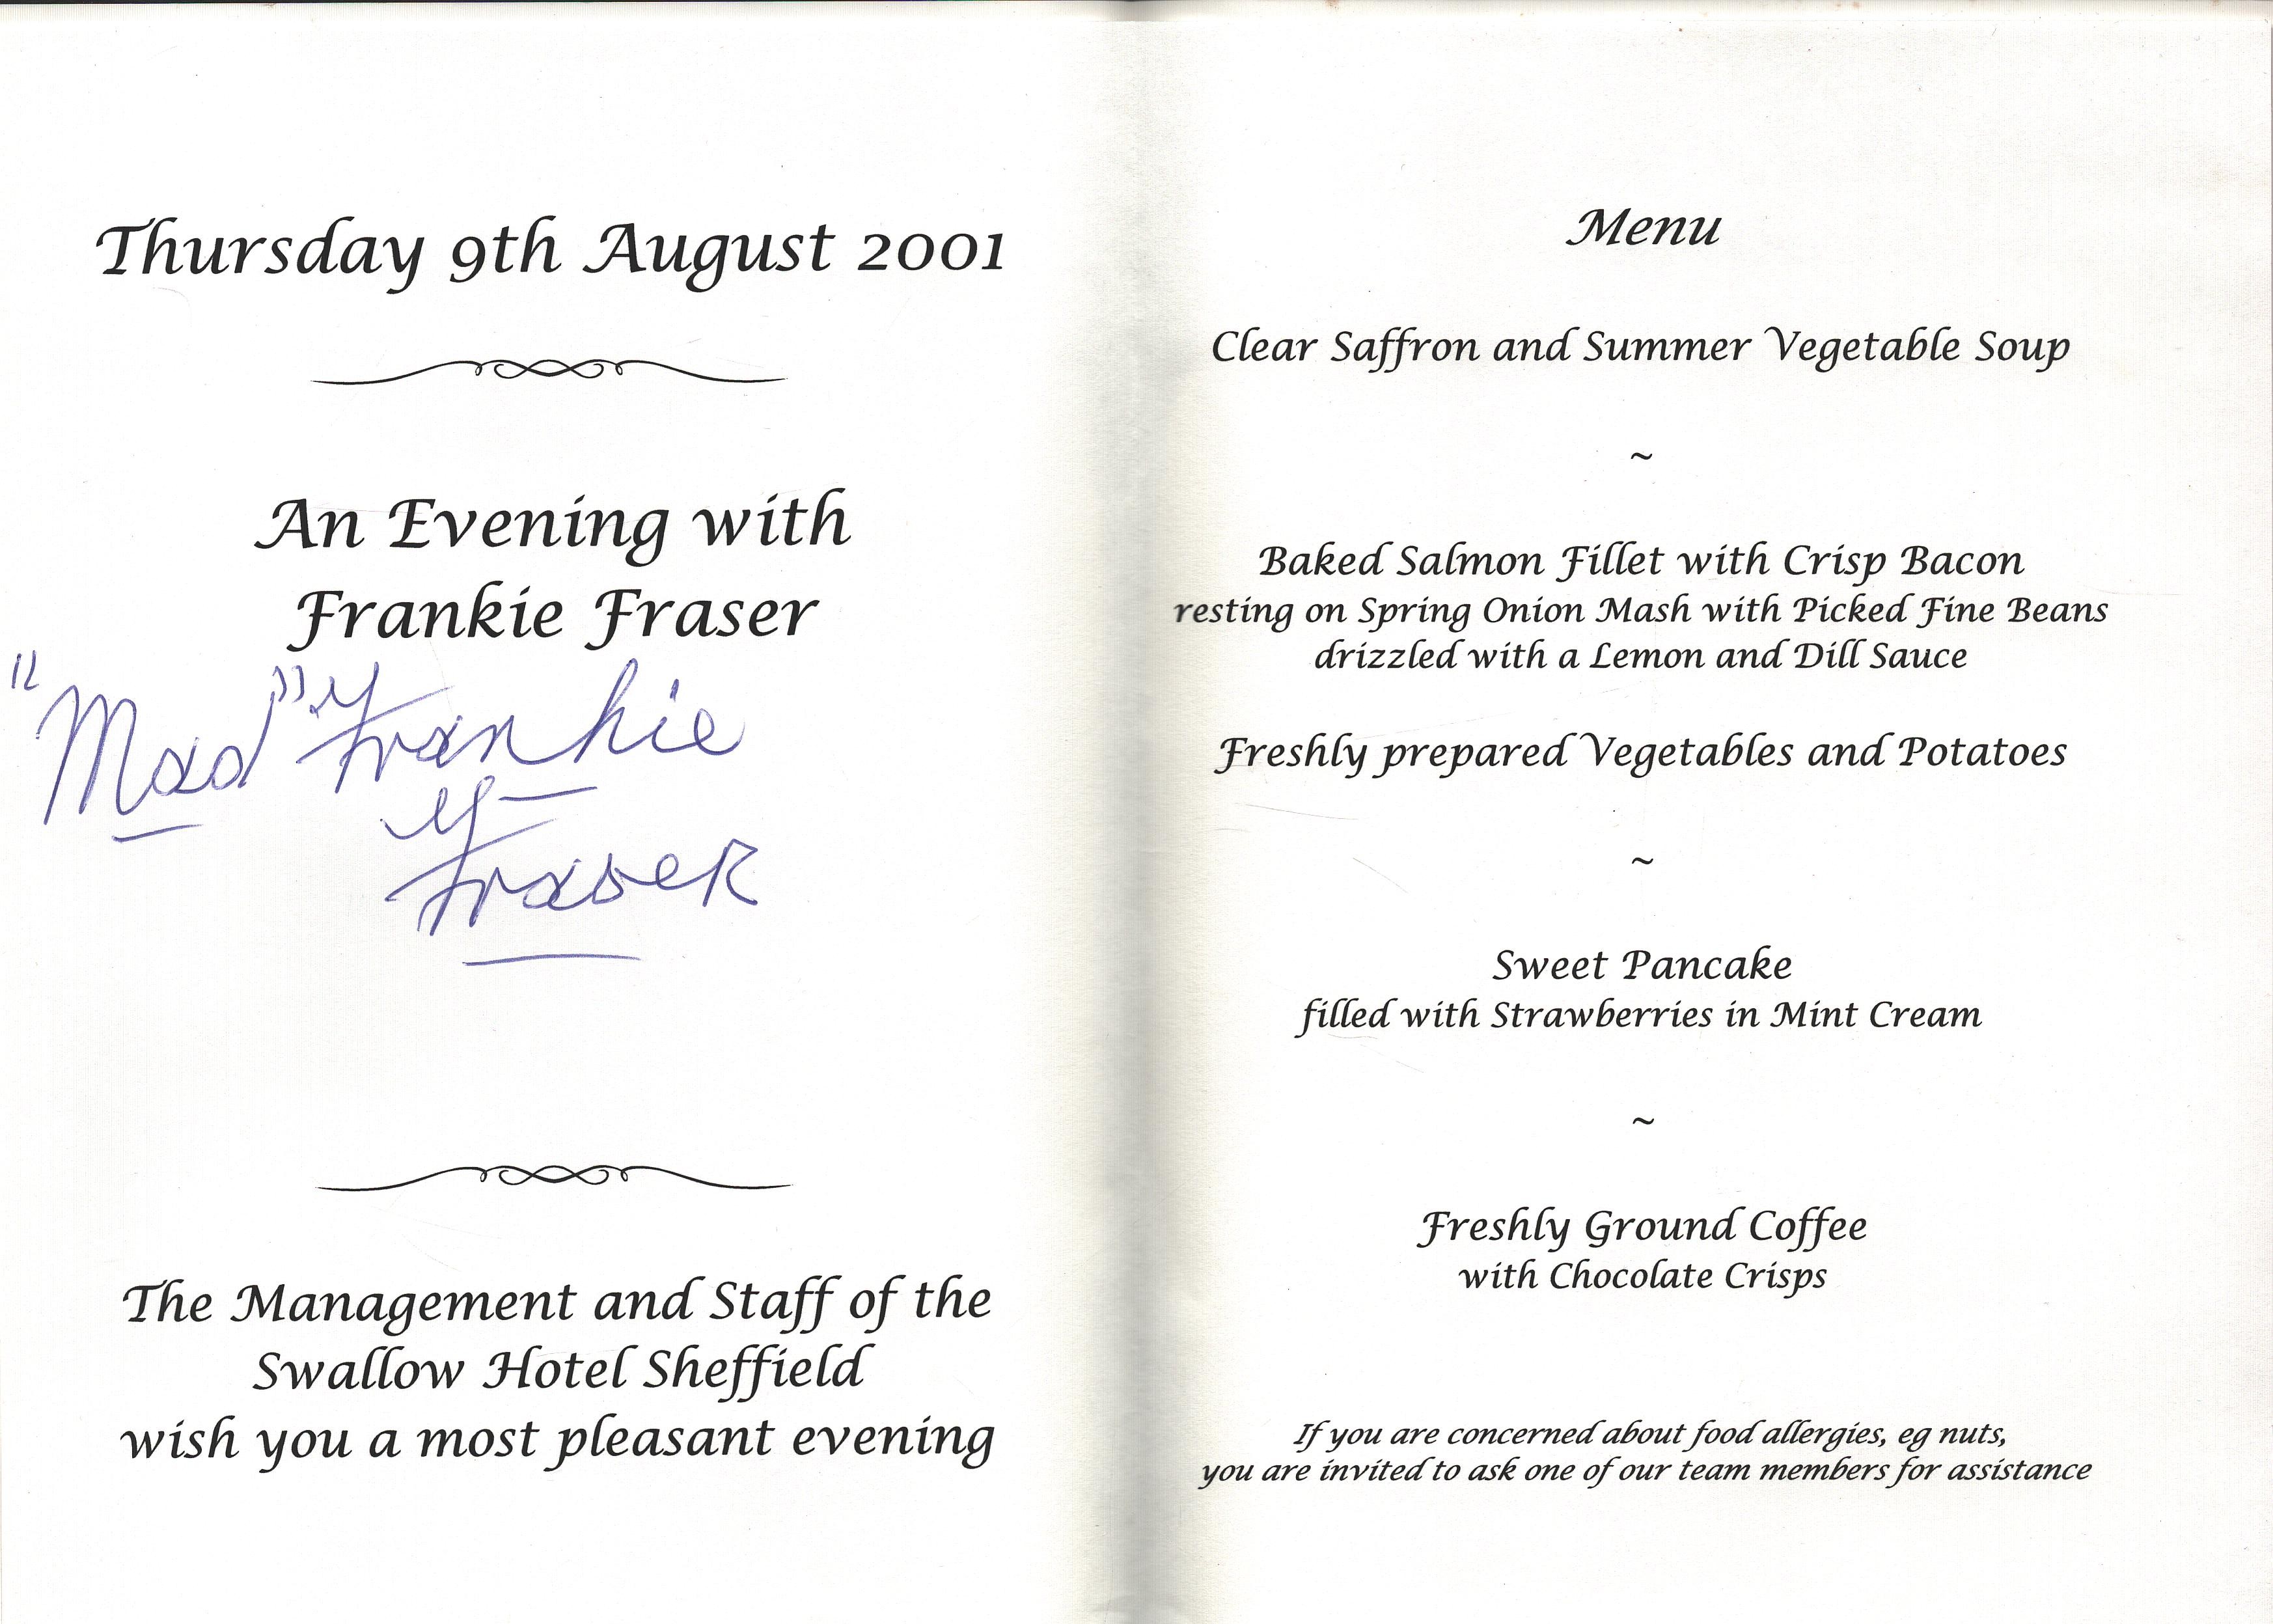 Thursday 9th August 2001
An Evening with
Frankie Fraser
"Mad" Frankie
Fraser
The Management and Staff of the
Swallow Hotel Sheffield
wish you a most pleasant evening
Menu
Clear Saffron and Summer Vegetable Soup
~
Baked Salmon Fillet with Crisp Bacon
resting on Spring Onion Mash with Picked Fine Beans
drizzled with a Lemon and Dill Sauce
Freshly prepared Vegetables and Potatoes
~
Sweet Pancake
filled with Strawberries in Mint Cream
~
Freshly Ground Coffee
with Chocolate Crisps
If you are concerned about food allergies, eg nuts,
you are invited to ask one of our team members for assistance